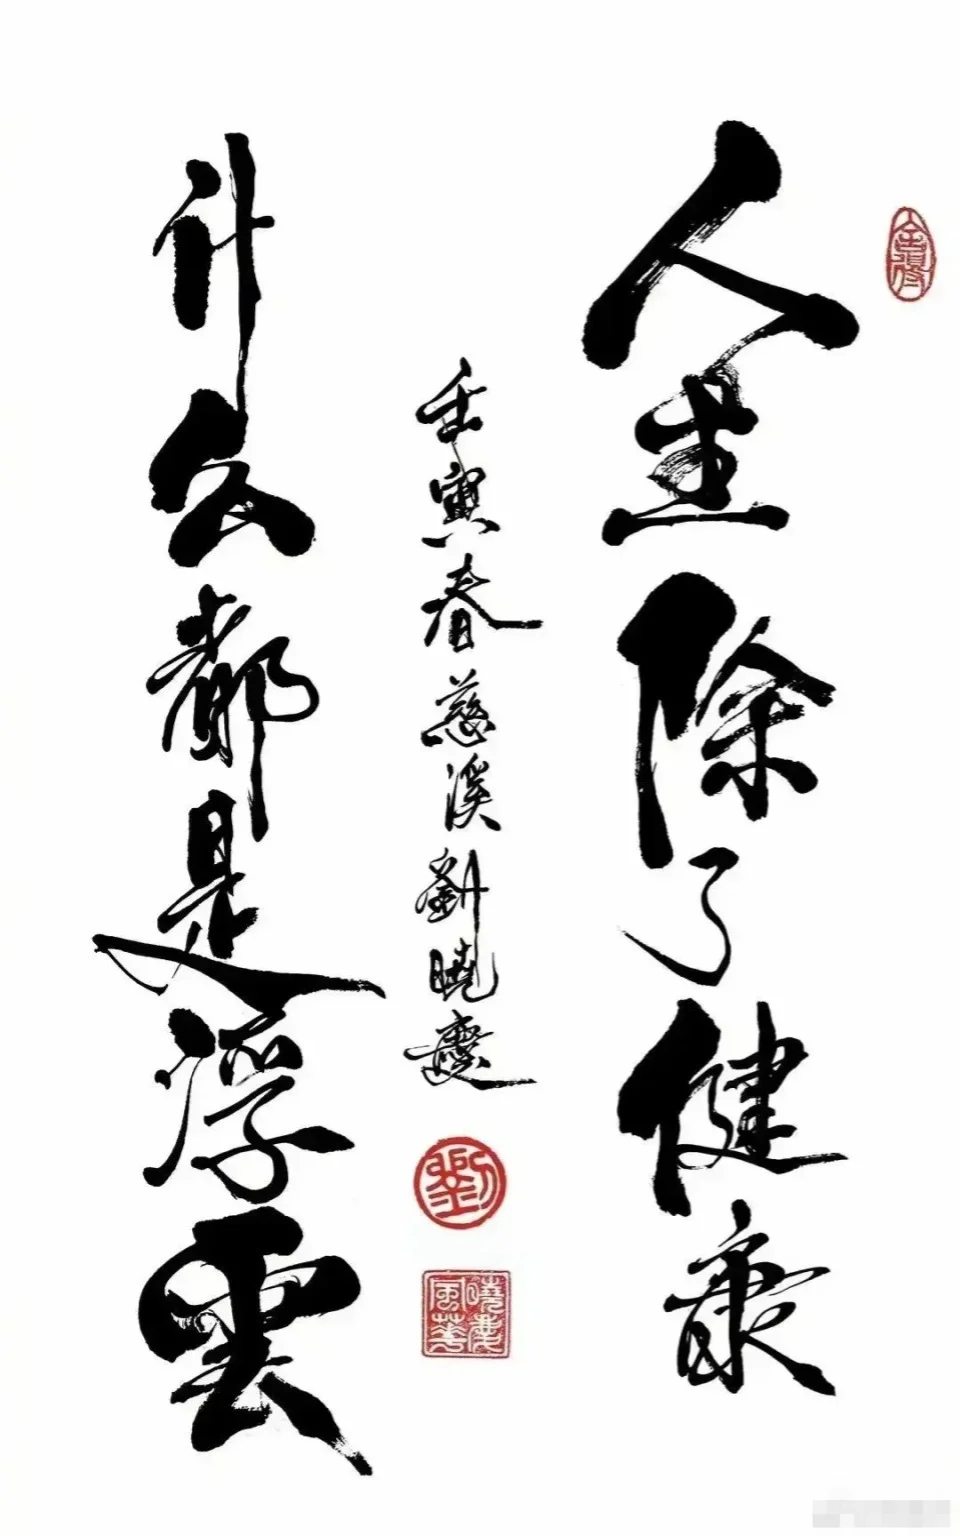 人生除了健康
什么都是浮雲
壬寅春慈溪劉曉慶
劉
曉慶
風華